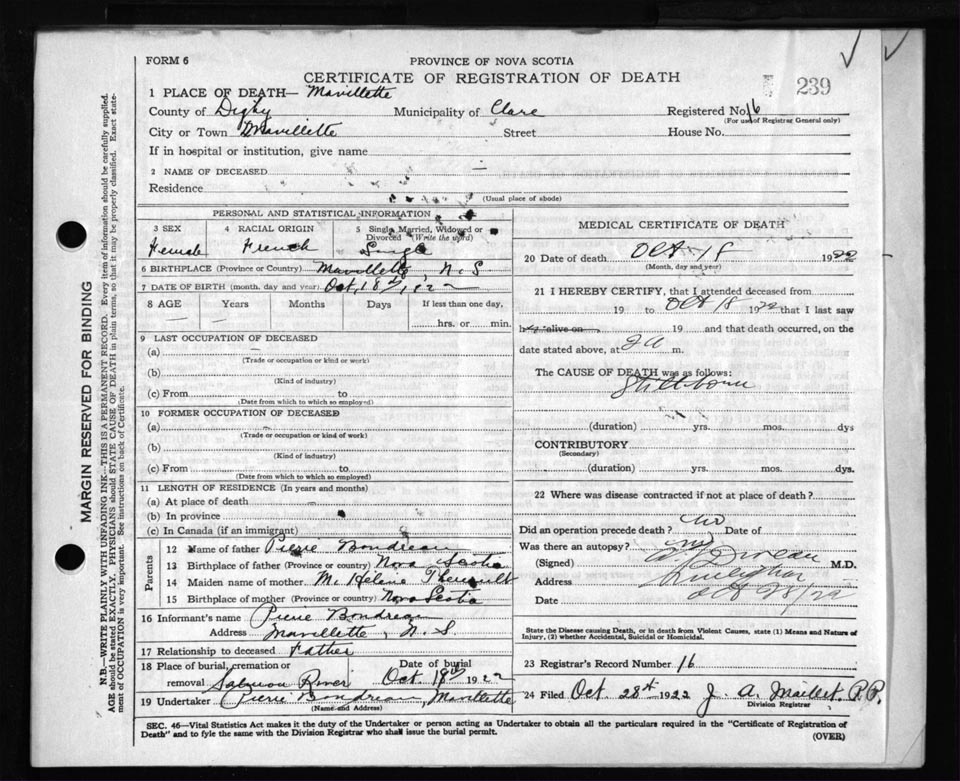 FORM 6
PROVINCE OF NOVA SCOTIA
CERTIFICATE OF REGISTRATION OF DEATH
239
1 PLACE OF DEATH— Mavillette
County of Digby Municipality of Clare Registered No. 16
(For use of Registrar General only)
City or Town Mavillette Street House No.
If in hospital or institution, give name
2 NAME OF DECEASED —
Residence
(Usual place of abode)
PERSONAL AND STATISTICAL INFORMATION
3 SEX 4 RACIAL ORIGIN 5 Single, Married, Widowed or Divorced (Write the word)
Female French Single
6 BIRTHPLACE (Province or Country) Mavillette, N.S
7 DATE OF BIRTH (month, day and year) Oct, 18th, 1922
8 AGE Years Months Days If less than one day,
— — hrs. or min.
9 LAST OCCUPATION OF DECEASED
(a) —
(Trade or occupation or kind or work)
(b)
(Kind of industry)
(c) From to
(Date from which to which so employed)
10 FORMER OCCUPATION OF DECEASED
(a) —
(Trade or occupation or kind of work)
(b)
(Kind of industry)
(c) From to
(Date from which to which so employed)
11 LENGTH OF RESIDENCE (In years and months)
(a) At place of death —
(b) In province
(c) In Canada (if an immigrant)
Parents
12 Name of father Pierre Boudreau
13 Birthplace of father (Province or country) Nova Scotia
14 Maiden name of mother M. Helene Theriault
15 Birthplace of mother (Province or country) Nova Scotia
16 Informant's name Pierre Boudreau
Address Mavillette, N.S.
17 Relationship to deceased Father
18 Place of burial, cremation or removal Salmon River Date of burial Oct. 18th 1922
19 Undertaker Pierre Boudreau, Mavillette
(Name and Address)
MEDICAL CERTIFICATE OF DEATH
20 Date of death Oct 18 1922
(Month, day and year)
21 I HEREBY CERTIFY, that I attended deceased from
19 to Oct 18 1922 that I last saw
alive on 19 and that death occurred, on the
date stated above, at 2 a m.
The CAUSE OF DEATH was as follows:
Stillborn
(duration) yrs. mos. dys
CONTRIBUTORY
(Secondary)
(duration) yrs. mos. dys.
22 Where was disease contracted if not at place of death?
Did an operation precede death? no Date of
Was there an autopsy? no
(Signed) M.D.
Address
Date Oct 28/22
State the Disease causing Death, or in death from Violent Causes, state (1) Means and Nature of
Injury, (2) whether Accidental, Suicidal or Homicidal.
23 Registrar's Record Number 16
24 Filed Oct. 28th 1922 J. A. Maillet P.P.
Division Registrar
SEC. 46—Vital Statistics Act makes it the duty of the Undertaker or person acting as Undertaker to obtain all the particulars required in the "Certificate of Registration of
Death" and to fyle the same with the Division Registrar who shall issue the burial permit.
(OVER)
MARGIN RESERVED FOR BINDING
N.B.—WRITE PLAINLY WITH UNFADING INK—THIS IS A PERMANENT RECORD. Every item of information should be carefully supplied.
AGE should be stated EXACTLY. PHYSICIANS should STATE CAUSE OF DEATH in plain terms, so that it may be properly classified. Exact state-
ment of OCCUPATION is very important. See instructions on back of Certificate.